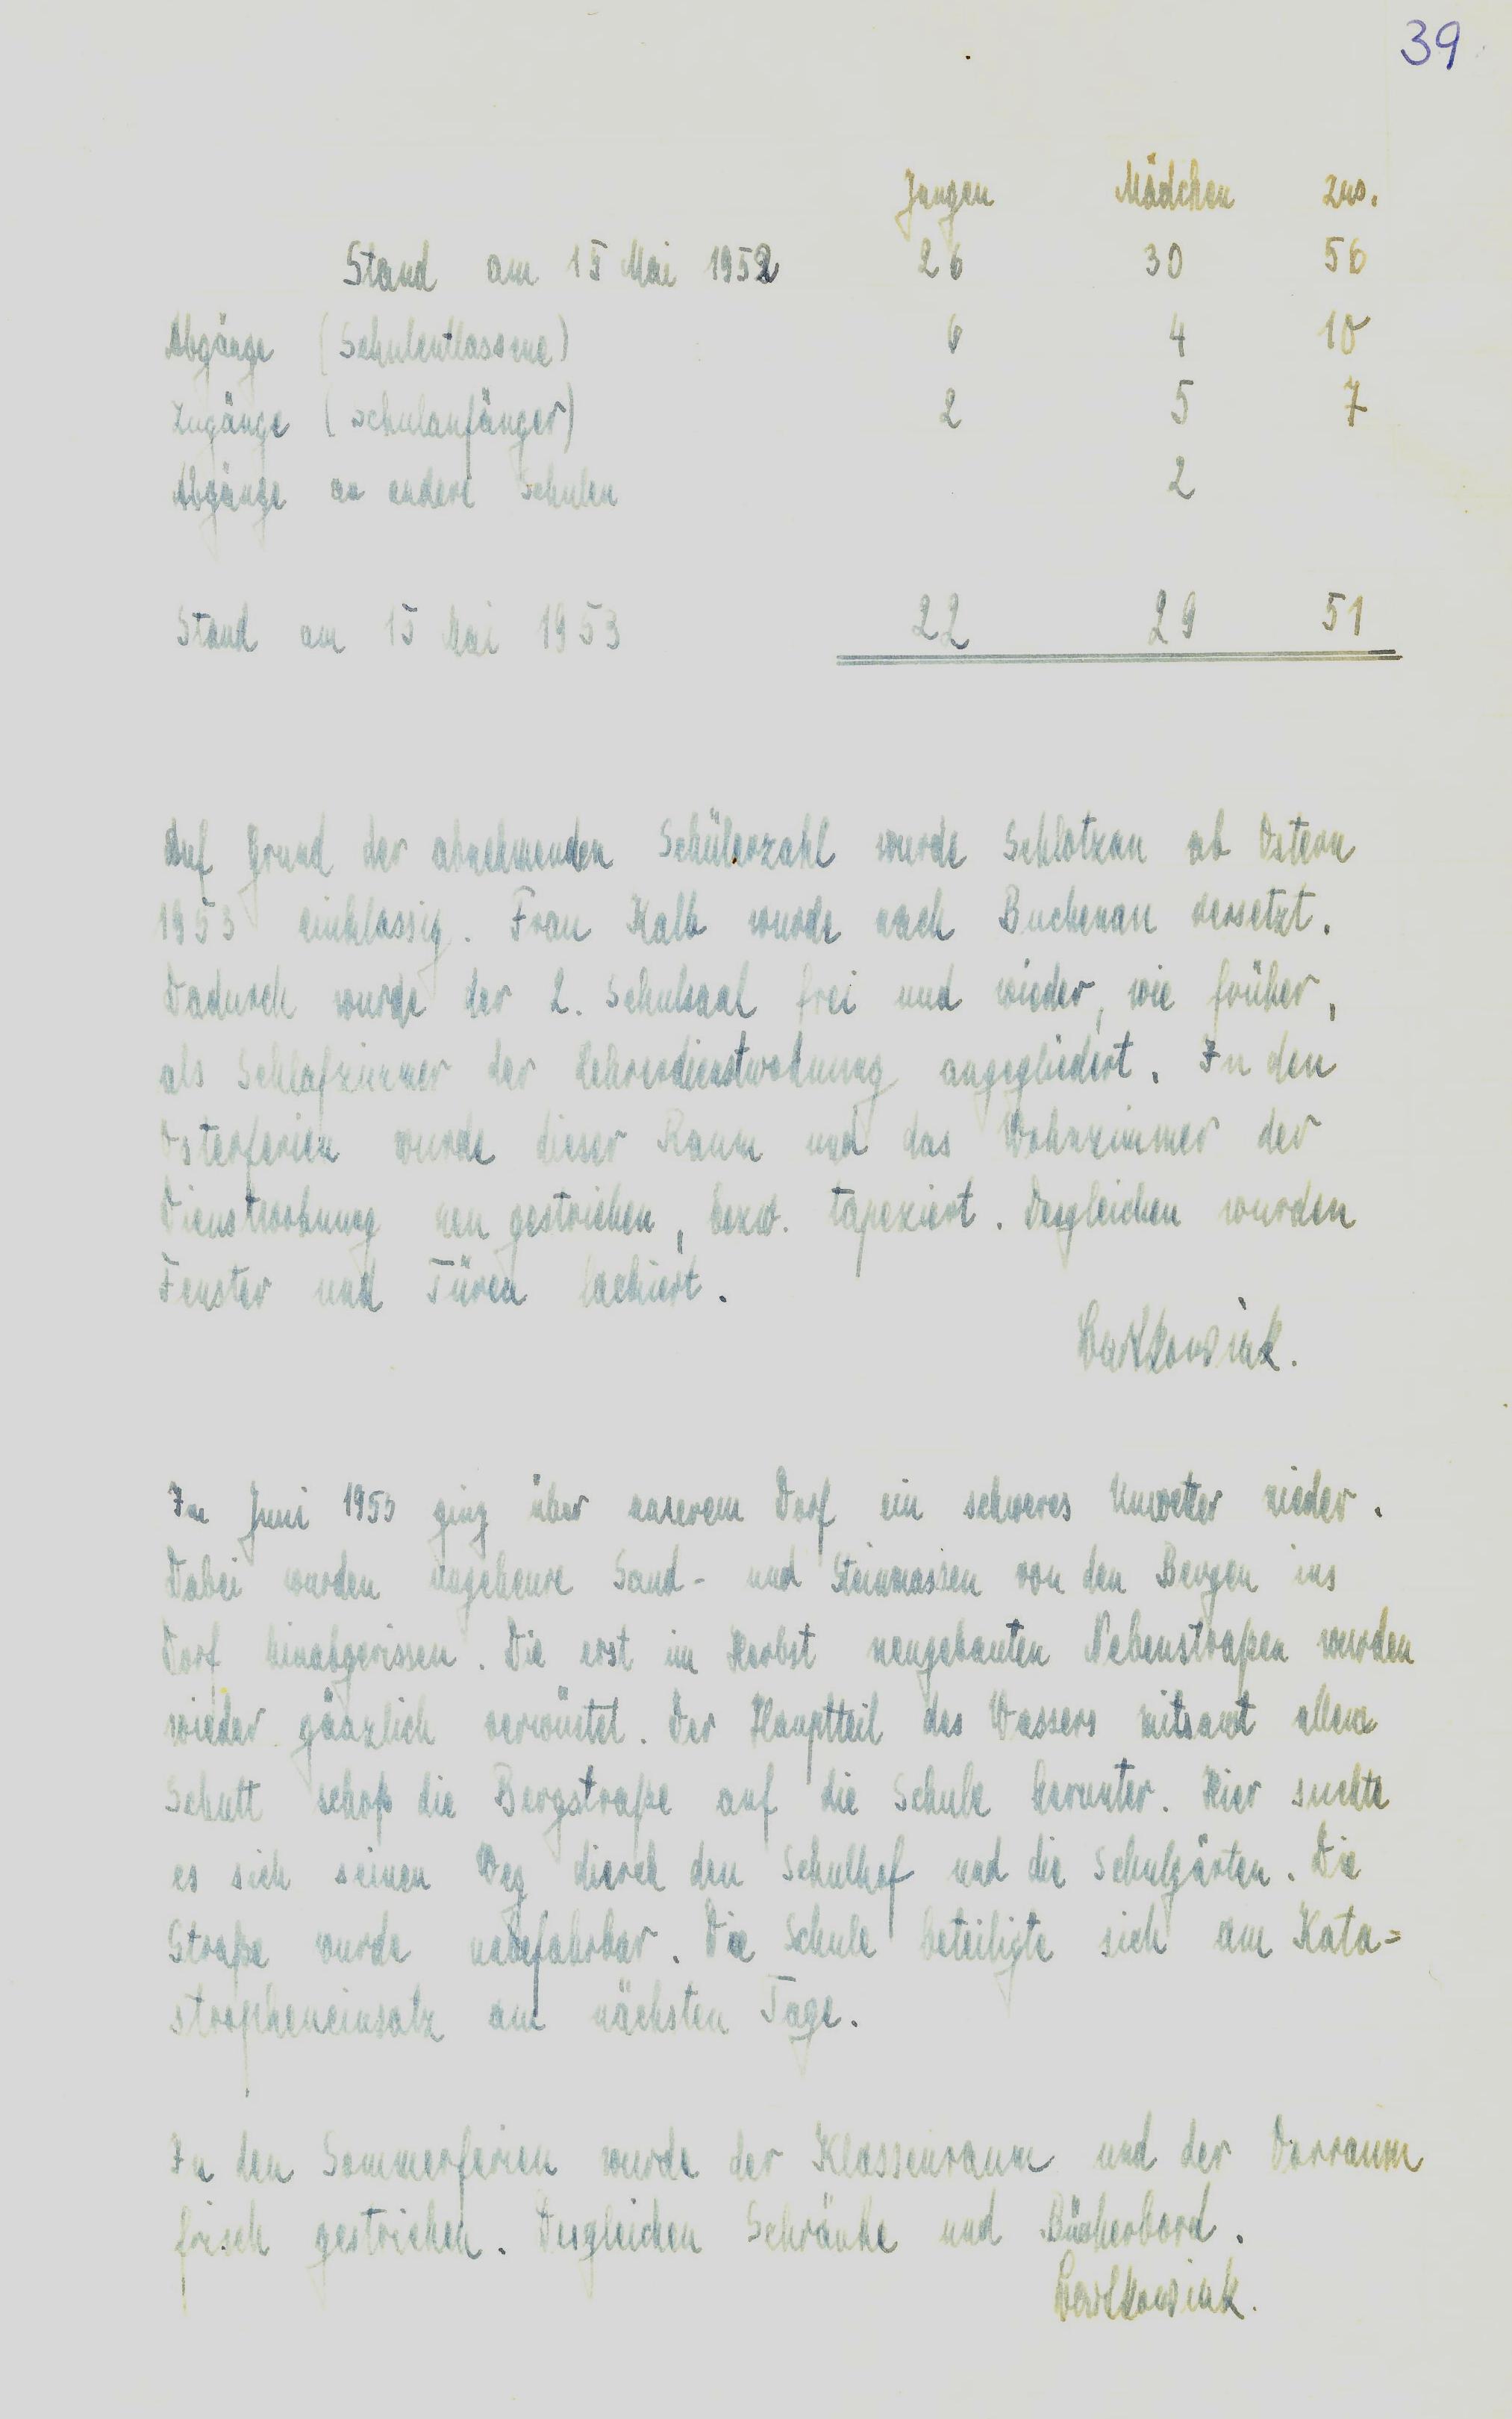 39
Jungen Mädchen zus.
Stand am 15 Mai 1952 26 30 56
Abgänge (Schulentlassene) 6 4 10
Zugänge (Schulanfänger) 2 5 7
Abgänge an andere Schulen 2
Stand am 15 Mai 1953 22 29 51
Auf Grund der abnehmenden Schülerzahl wurde Schlotzau ab Ostern
1953 einklassig. Frau Kalb wurde nach Buchenau versetzt.
Dadurch wurde der 2. Schulsaal frei und wieder, wie früher,
als Schlafzimmer der Lehrerdienstwohnung angegliedert. In den
Osterferien wurde dieser Raum und das Wohnzimmer der
Dienstwohnung neu gestrichen, bezw. tapeziert. Desgleichen wurden
Fenster und Türen lackiert.
Im Juni 1953 ging über unserem Dorf ein schweres Unwetter nieder.
Dabei wurden ungeheure Sand- und Steinmassen von den Bergen ins
Dorf hinabgerissen. Die erst im Herbst neugebauten Nebenstraßen wurden
wieder gänzlich verwüstet. Der Hauptteil des Wassers mitsamt allem
Schutt schoß die Bergstraße auf die Schule herunter. Hier suchte
es sich seinen Weg durch den Schulhof und die Schulgärten. Die
Straße wurde unbefahrbar. Die Schule beteiligte sich am Kata=
stropheneinsatz am nächsten Tage.
In den Sommerferien wurde der Klassenraum und der Vorraum
frisch gestrichen. Desgleichen Schränke und Bücherbord.